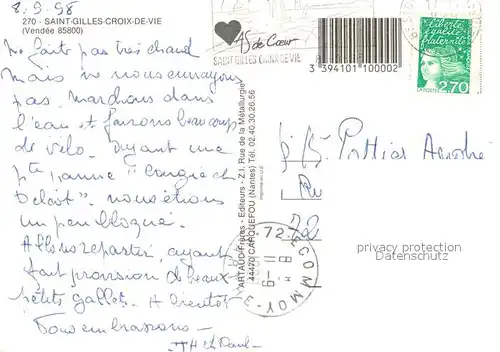 8.9.98
270 - SAINT-GILLES-CROIX-DE-VIE
(Vendée 85800)
Ne faite pas très chaud
Mais ne nous ennuyons
pas, marchons dans
l'eau et faisons beaucoup
de vélo. Ayant une
pte panne
nous étions
un peu bloqué.
Allons repartir, ayant
fait provision de beaux
petits galets. A bientôt
Vous embrassons -
As de Cœur
SAINT GILLES CROIX DE VIE
3 394101 100002
Liberté
égalité
fraternité
LA POSTE
2,70
ARTAUD Frères - Editeurs - Z.I. Rue de la Métallurgie
44470 CARQUEFOU (Nantes) Tél. 02.40.30.26.56
72
72
ECOMMOY
privacy protection
Datenschutz